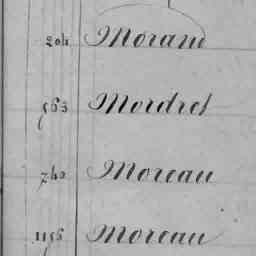 204 Morand
563 Mordret
740 Moreau
1156 Moreau